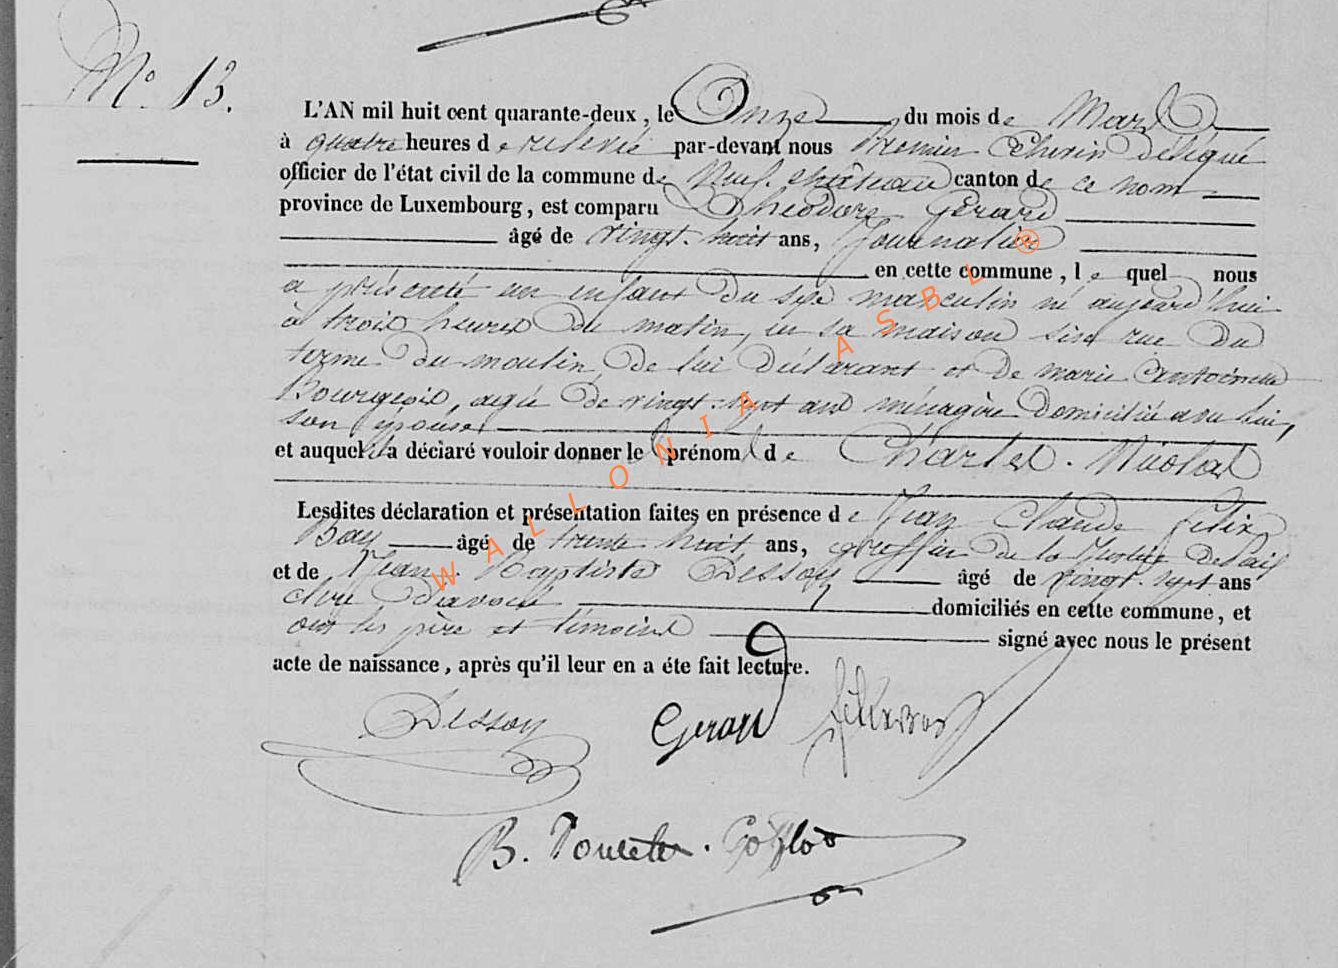 N° 13.
L'AN mil huit cent quarante-deux, le Onze du mois de Mars
à quatre heures de relevée par-devant nous Premier Echevin délégué
officier de l'état civil de la commune de Neufchâteau canton de ce nom
province de Luxembourg, est comparu Théodore Gérard
âgé de vingt-huit ans, Journalier
en cette commune, le quel nous
a présenté un enfant du sexe masculin né aujourd'hui
à trois heures du matin, en sa maison sise rue du
terme du moulin, de lui déclarant et de marie Antoinette
Bourgeois, agée de vingt-sept ans ménagère domiciliée avec lui,
son épouse,
et auquel il a déclaré vouloir donner les prénoms de Charles-Nicolas
Lesdites déclaration et présentation faites en présence de Jean Claude Félix
Bay âgé de trente huit ans, greffier de la Justice de Paix
et de Jean-Baptiste Desson âgé de vingt-sept ans
clerc d'avoué domiciliés en cette commune, et
ont les père et témoins signé avec nous le présent
acte de naissance, après qu'il leur en a éte fait lecture.
Desson Gerard
B.
WALLONIA ASBL ®